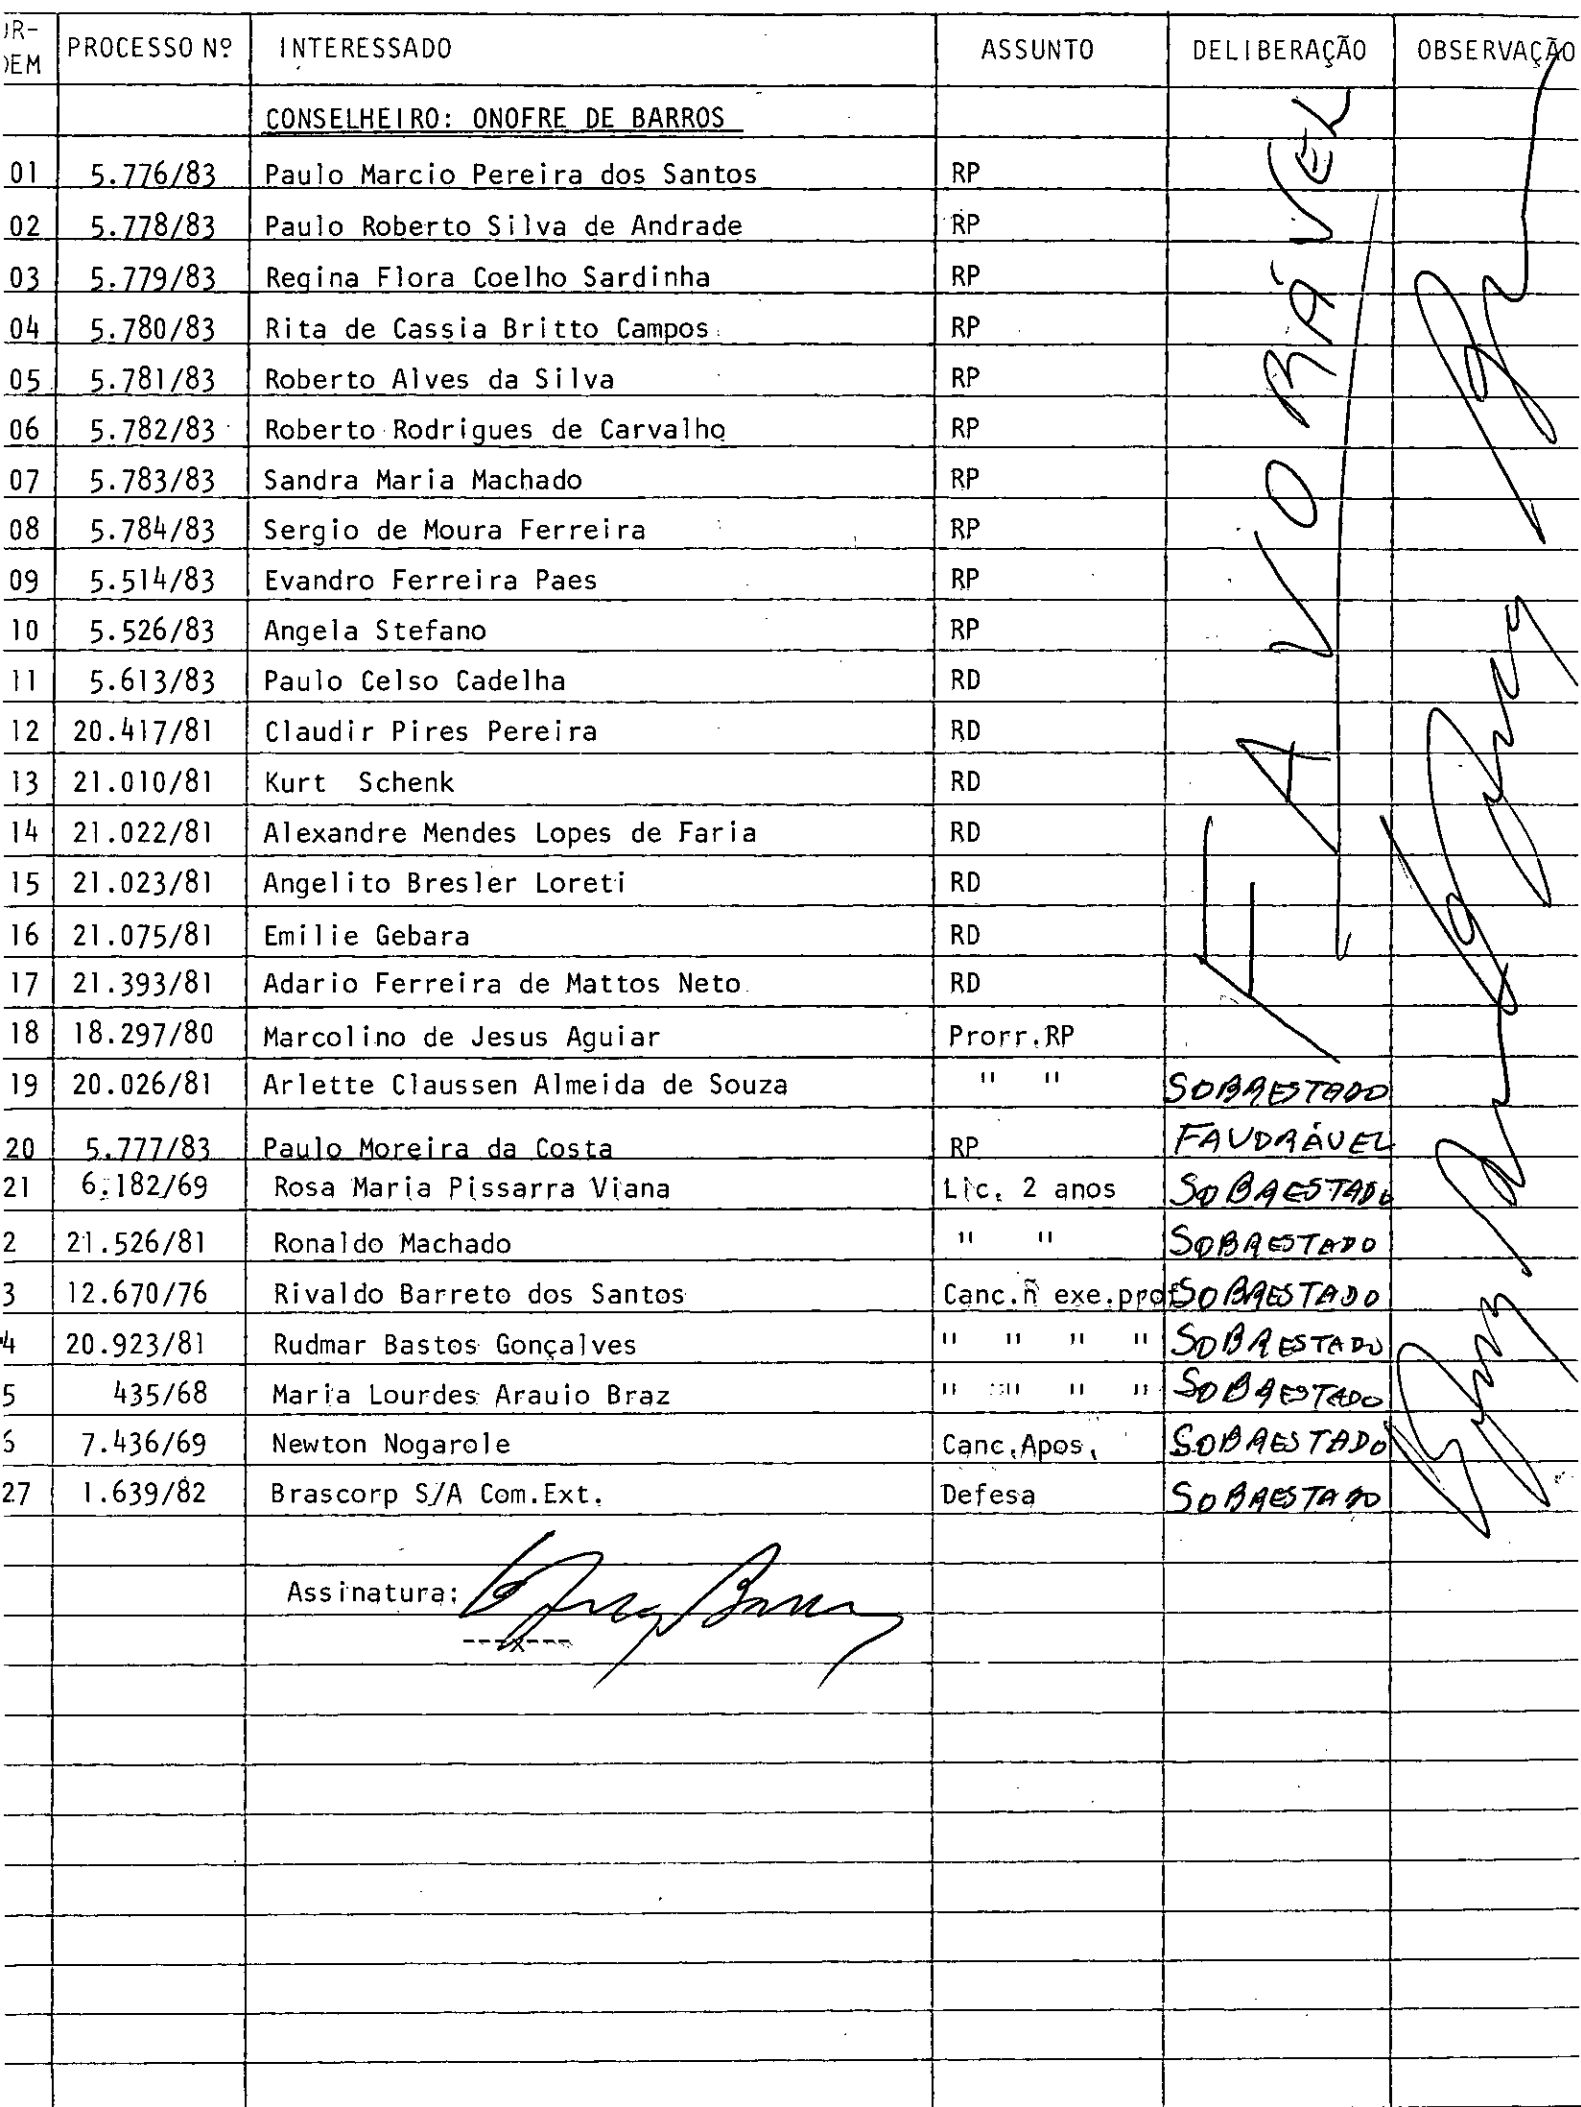 OR- PROCESSO Nº INTERESSADO ASSUNTO DELIBERAÇÃO OBSERVAÇÃO
DEM
CONSELHEIRO: ONOFRE DE BARROS
01 5.776/83 Paulo Marcio Pereira dos Santos RP
02 5.778/83 Paulo Roberto Silva de Andrade RP
03 5.779/83 Regina Flora Coelho Sardinha RP
04 5.780/83 Rita de Cassia Britto Campos RP
05 5.781/83 Roberto Alves da Silva RP
06 5.782/83 Roberto Rodrigues de Carvalho RP
07 5.783/83 Sandra Maria Machado RP
08 5.784/83 Sergio de Moura Ferreira RP
09 5.514/83 Evandro Ferreira Paes RP
10 5.526/83 Angela Stefano RP
11 5.613/83 Paulo Celso Cadelha RD
12 20.417/81 Claudir Pires Pereira RD
13 21.010/81 Kurt Schenk RD
14 21.022/81 Alexandre Mendes Lopes de Faria RD
15 21.023/81 Angelito Bresler Loreti RD
16 21.075/81 Emilie Gebara RD
17 21.393/81 Adario Ferreira de Mattos Neto RD
18 18.297/80 Marcolino de Jesus Aguiar Prorr.RP
FAVORÁVEL
19 20.026/81 Arlette Claussen Almeida de Souza " " SOBRESTADO
20 5.777/83 Paulo Moreira da Costa RP FAVORÁVEL
21 6.182/69 Rosa Maria Pissarra Viana Lic. 2 anos SOBRESTADO
2 21.526/81 Ronaldo Machado " " SOBRESTADO
3 12.670/76 Rivaldo Barreto dos Santos Canc.ñ exe.prof SOBRESTADO
4 20.923/81 Rudmar Bastos Gonçalves " " " " SOBRESTADO
5 435/68 Maria Lourdes Arauio Braz " " " " SOBRESTADO
6 7.436/69 Newton Nogarole Canc.Apos. SOBRESTADO
27 1.639/82 Brascorp S/A Com.Ext. Defesa SOBRESTADO
Assinatura:
---x---